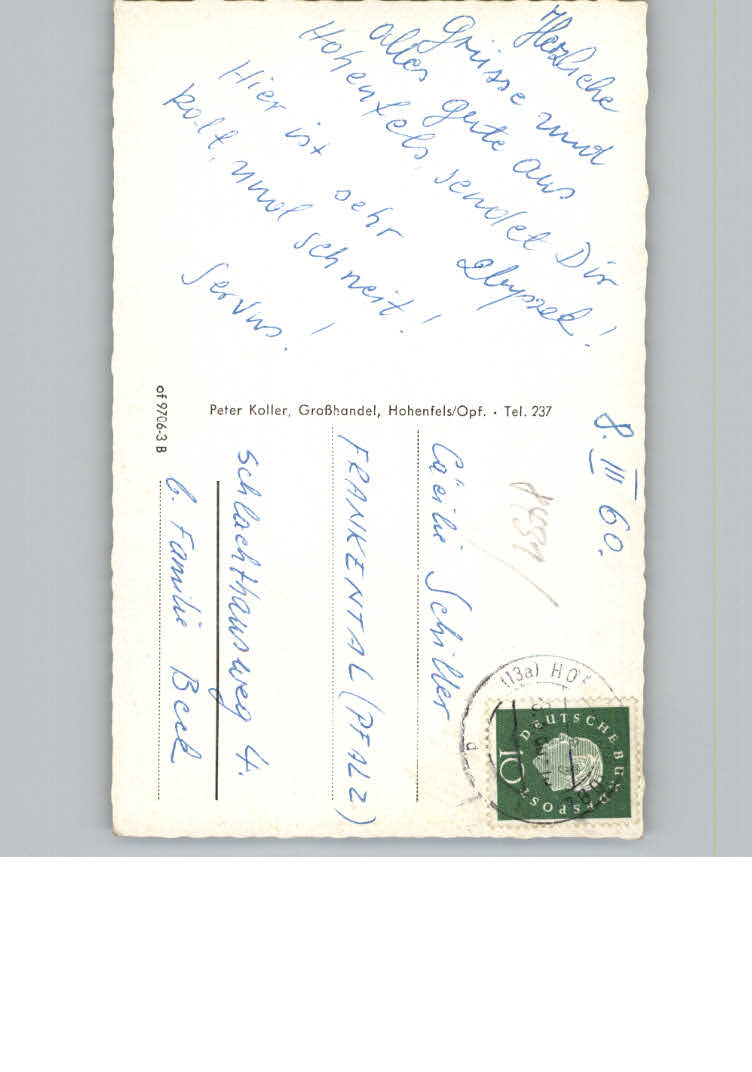 8. III 60.
Herzliche
Grüsse und
alles gute aus
Hohenfels, sendet Dir
Hier ist sehr
kalt, und schneit!
Servus!
Peter Koller, Großhandel, Hohenfels/Opf. · Tel. 237
of 9706-3 B
Cäcilie Schiller
FRANKENTAL (PFALZ)
Schlachthausweg 4.
b. Familie Beck
(13a) HO
DEUTSCHE BUNDESPOST
10